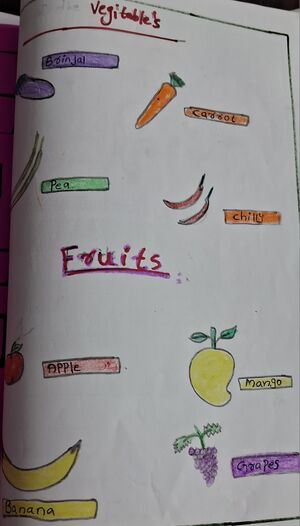 Vegitable's
Brinjal
Carrot
Pea
Chilly
Fruits
APPle
Mango
Grapes
Banana